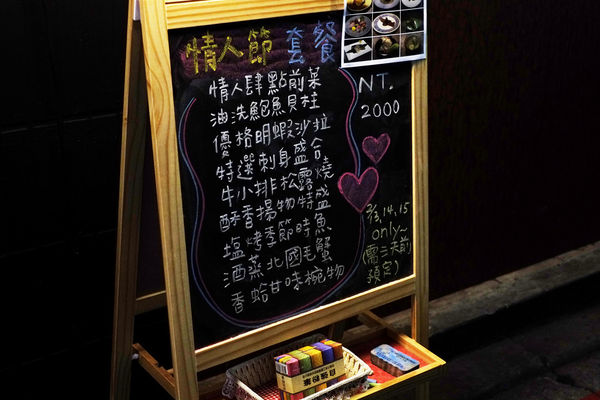 情人節 套餐
情人肆點前菜
油洗鮑魚貝柱
優格明蝦沙拉
特選刺身盛合
牛小排松露燒
酥香揚物特盛
塩烤季節時魚
酒蒸北國毛蟹
香蛤甘味椀物
NT.
2000
2/13,14,15
only~
(需三天前
預定)